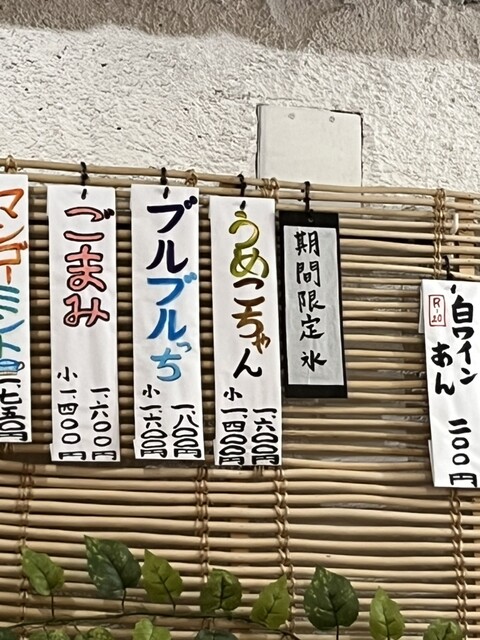 R-20
白ワイン
あん
二〇〇円
期間限定氷
うめこちゃん
一、六〇〇円
小一、四〇〇円
ブルブルっち
一、八〇〇円
小一、六〇〇円
ごまみ
一、六〇〇円
小一、四〇〇円
マンゴーミント
一、七五〇円